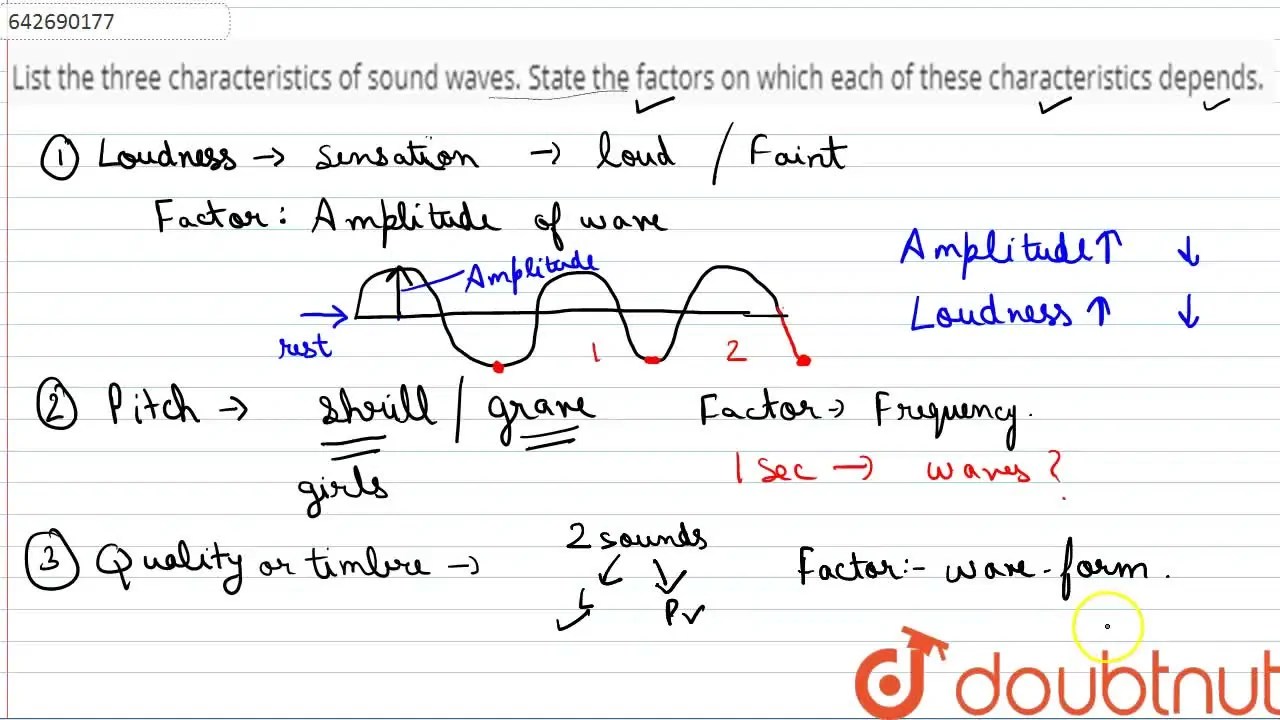 642690177
List the three characteristics of sound waves. State the factors on which each of these characteristics depends.
① Loudness → sensation → loud / Faint
Factor: Amplitude of wave
Amplitude↑ ↓
Amplitude
Loudness ↑ ↓
rest
1 2
② Pitch → shrill / grave Factor → Frequency.
1 sec → waves?
girls
③ Quality or timbre → 2 sounds Factor:- wave-form.
L P✓
doubtnut